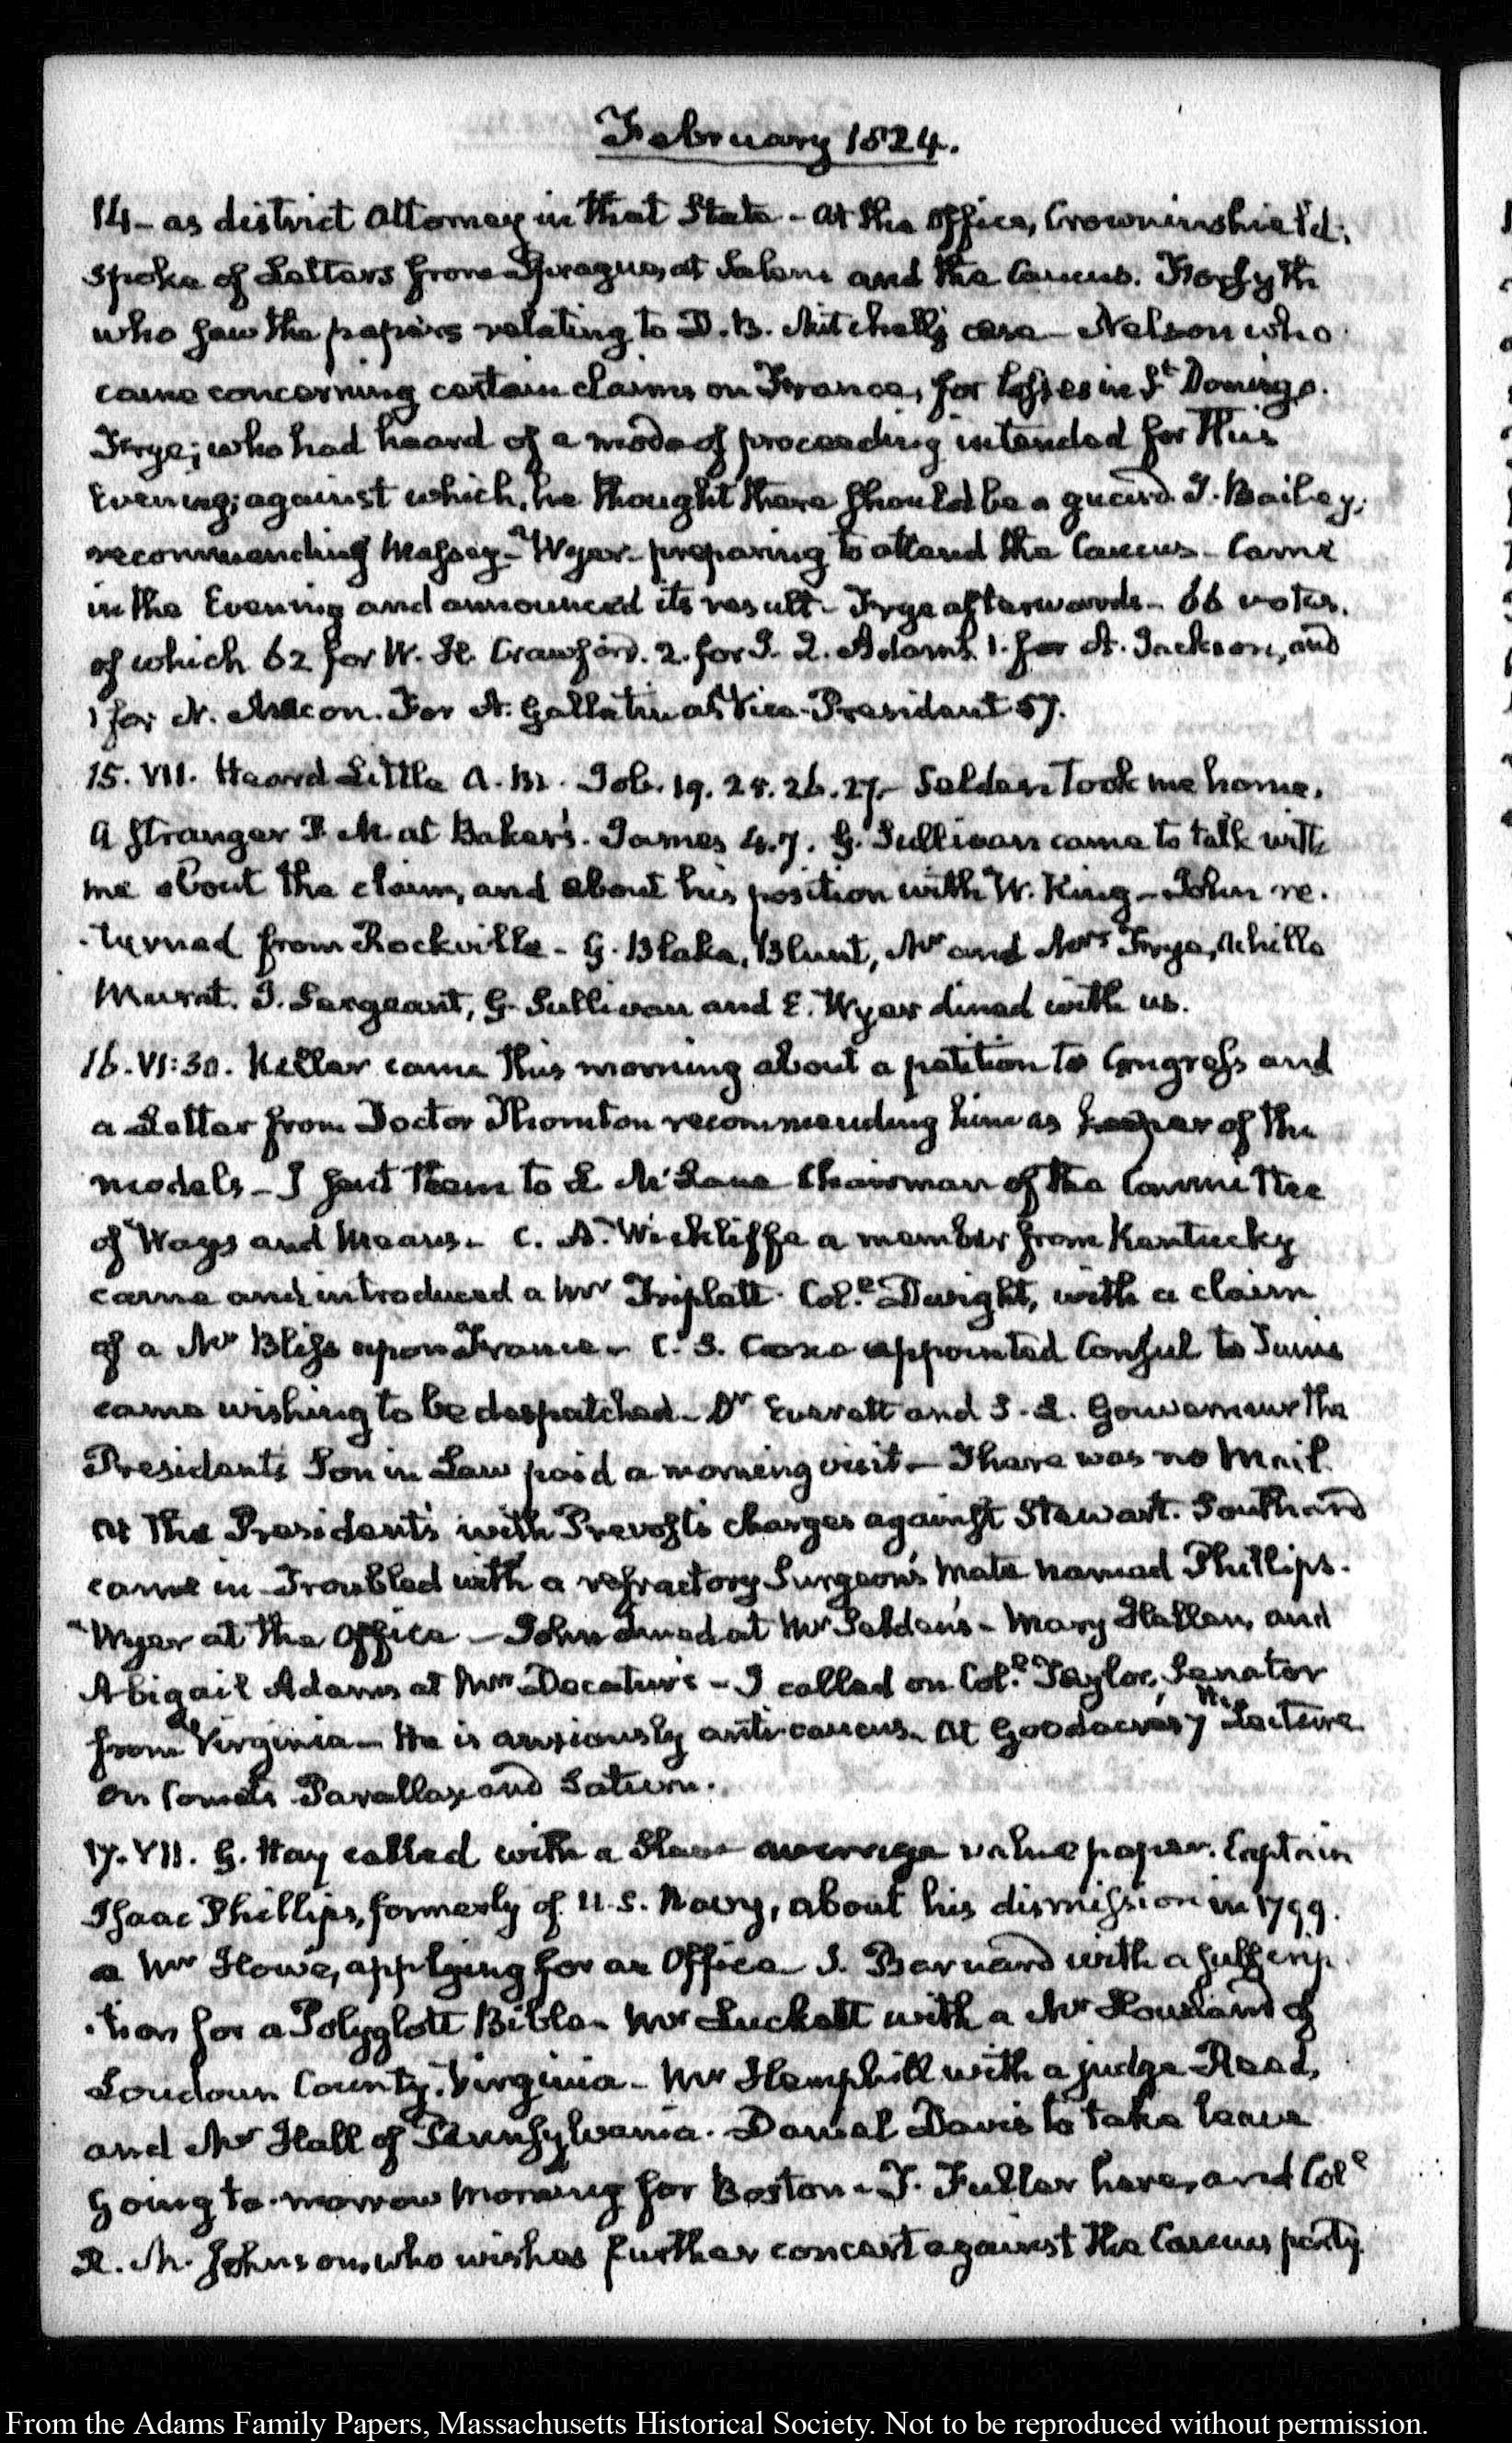 February 1824.
14 - as district Attorney in that State - At the Office, Crowninshield,
spoke of Letters from Sprague, at Salem and the Caucus. Forsyth
who saw the papers relating to D. B. Mitchell's case - Nelson who
came concerning certain claims on France, for losses in St Domingo.
Frye; who had heard of a mode of proceeding intended for this
Evening; against which, he thought there should be a guard. J. Bailey,
recommending Massey - Wyer - preparing to attend the Caucus - Came
in the Evening and announced its result - Frye afterwards - 66 votes.
of which 62 for W. H. Crawford. 2. for J. Q. Adams. 1. for A. Jackson, and
1 for N. Macon. For A. Gallatin as Vice-President 57.
15. VII. Heard Little A. M. Job. 19. 25. 26. 27 - Selden took me home.
A stranger P. M. at Baker's. James 4.7. G. Sullivan came to talk with
me about the claim, and about his position with W. King - John re-
-turned from Rockville - G. Blake, Blunt, Mr and Mrs Frye, Achille
Murat. J. Sergeant, G. Sullivan and E. Wyer dined with us.
16. VI:30. Keller came this morning about a petition to Congress and
a Letter from Doctor Thornton recommending him as keeper of the
models - I sent them to L McLane Chairman of the Committee
of Ways and Means - C. A. Wickliffe a member from Kentucky
came and introduced a Mr Triplett. Col.l Dwight, with a claim
of a Mr Bliss upon France - C. S. Coxe appointed Consul to Tunis
came wishing to be despatched - Dr Everett and S. L. Gouverneur the
Presidents Son in Law paid a morning visit - There was no Mail.
At the President's with Prevost's charges against Stewart. Southard
came in - Troubled with a refractory Surgeon's Mate named Phillips.
Wyer at the Office - John dined at Mr Selden's - Mary Hellen, and
Abigail Adams at Mrs Decatur's - I called on Col.l Taylor, Senator
from Virginia - He is anxiously anti-caucus. At Goodacre's 7th Lecture
on Comets Parallax and Saturn.
17. VII. G. Hay called with a Slave average value paper. Captain
Isaac Phillips, formerly of U.S. Navy, about his dismission in 1799.
a Mr Howe, applying for an Office - Barnard with a subscrip-
-tion for a Polyglott Bible - Mr Luckett with a Mr of
Loudoun County, Virginia - Mr Hemphill with a judge Read,
and Mr Hall of Pennsylvania. Daniel Davis to take leave
going to-morrow Morning for Boston - T. Fuller here, and Col.l
R. M. Johnson, who wishes further concert against the Caucus party
From the Adams Family Papers, Massachusetts Historical Society. Not to be reproduced without permission.